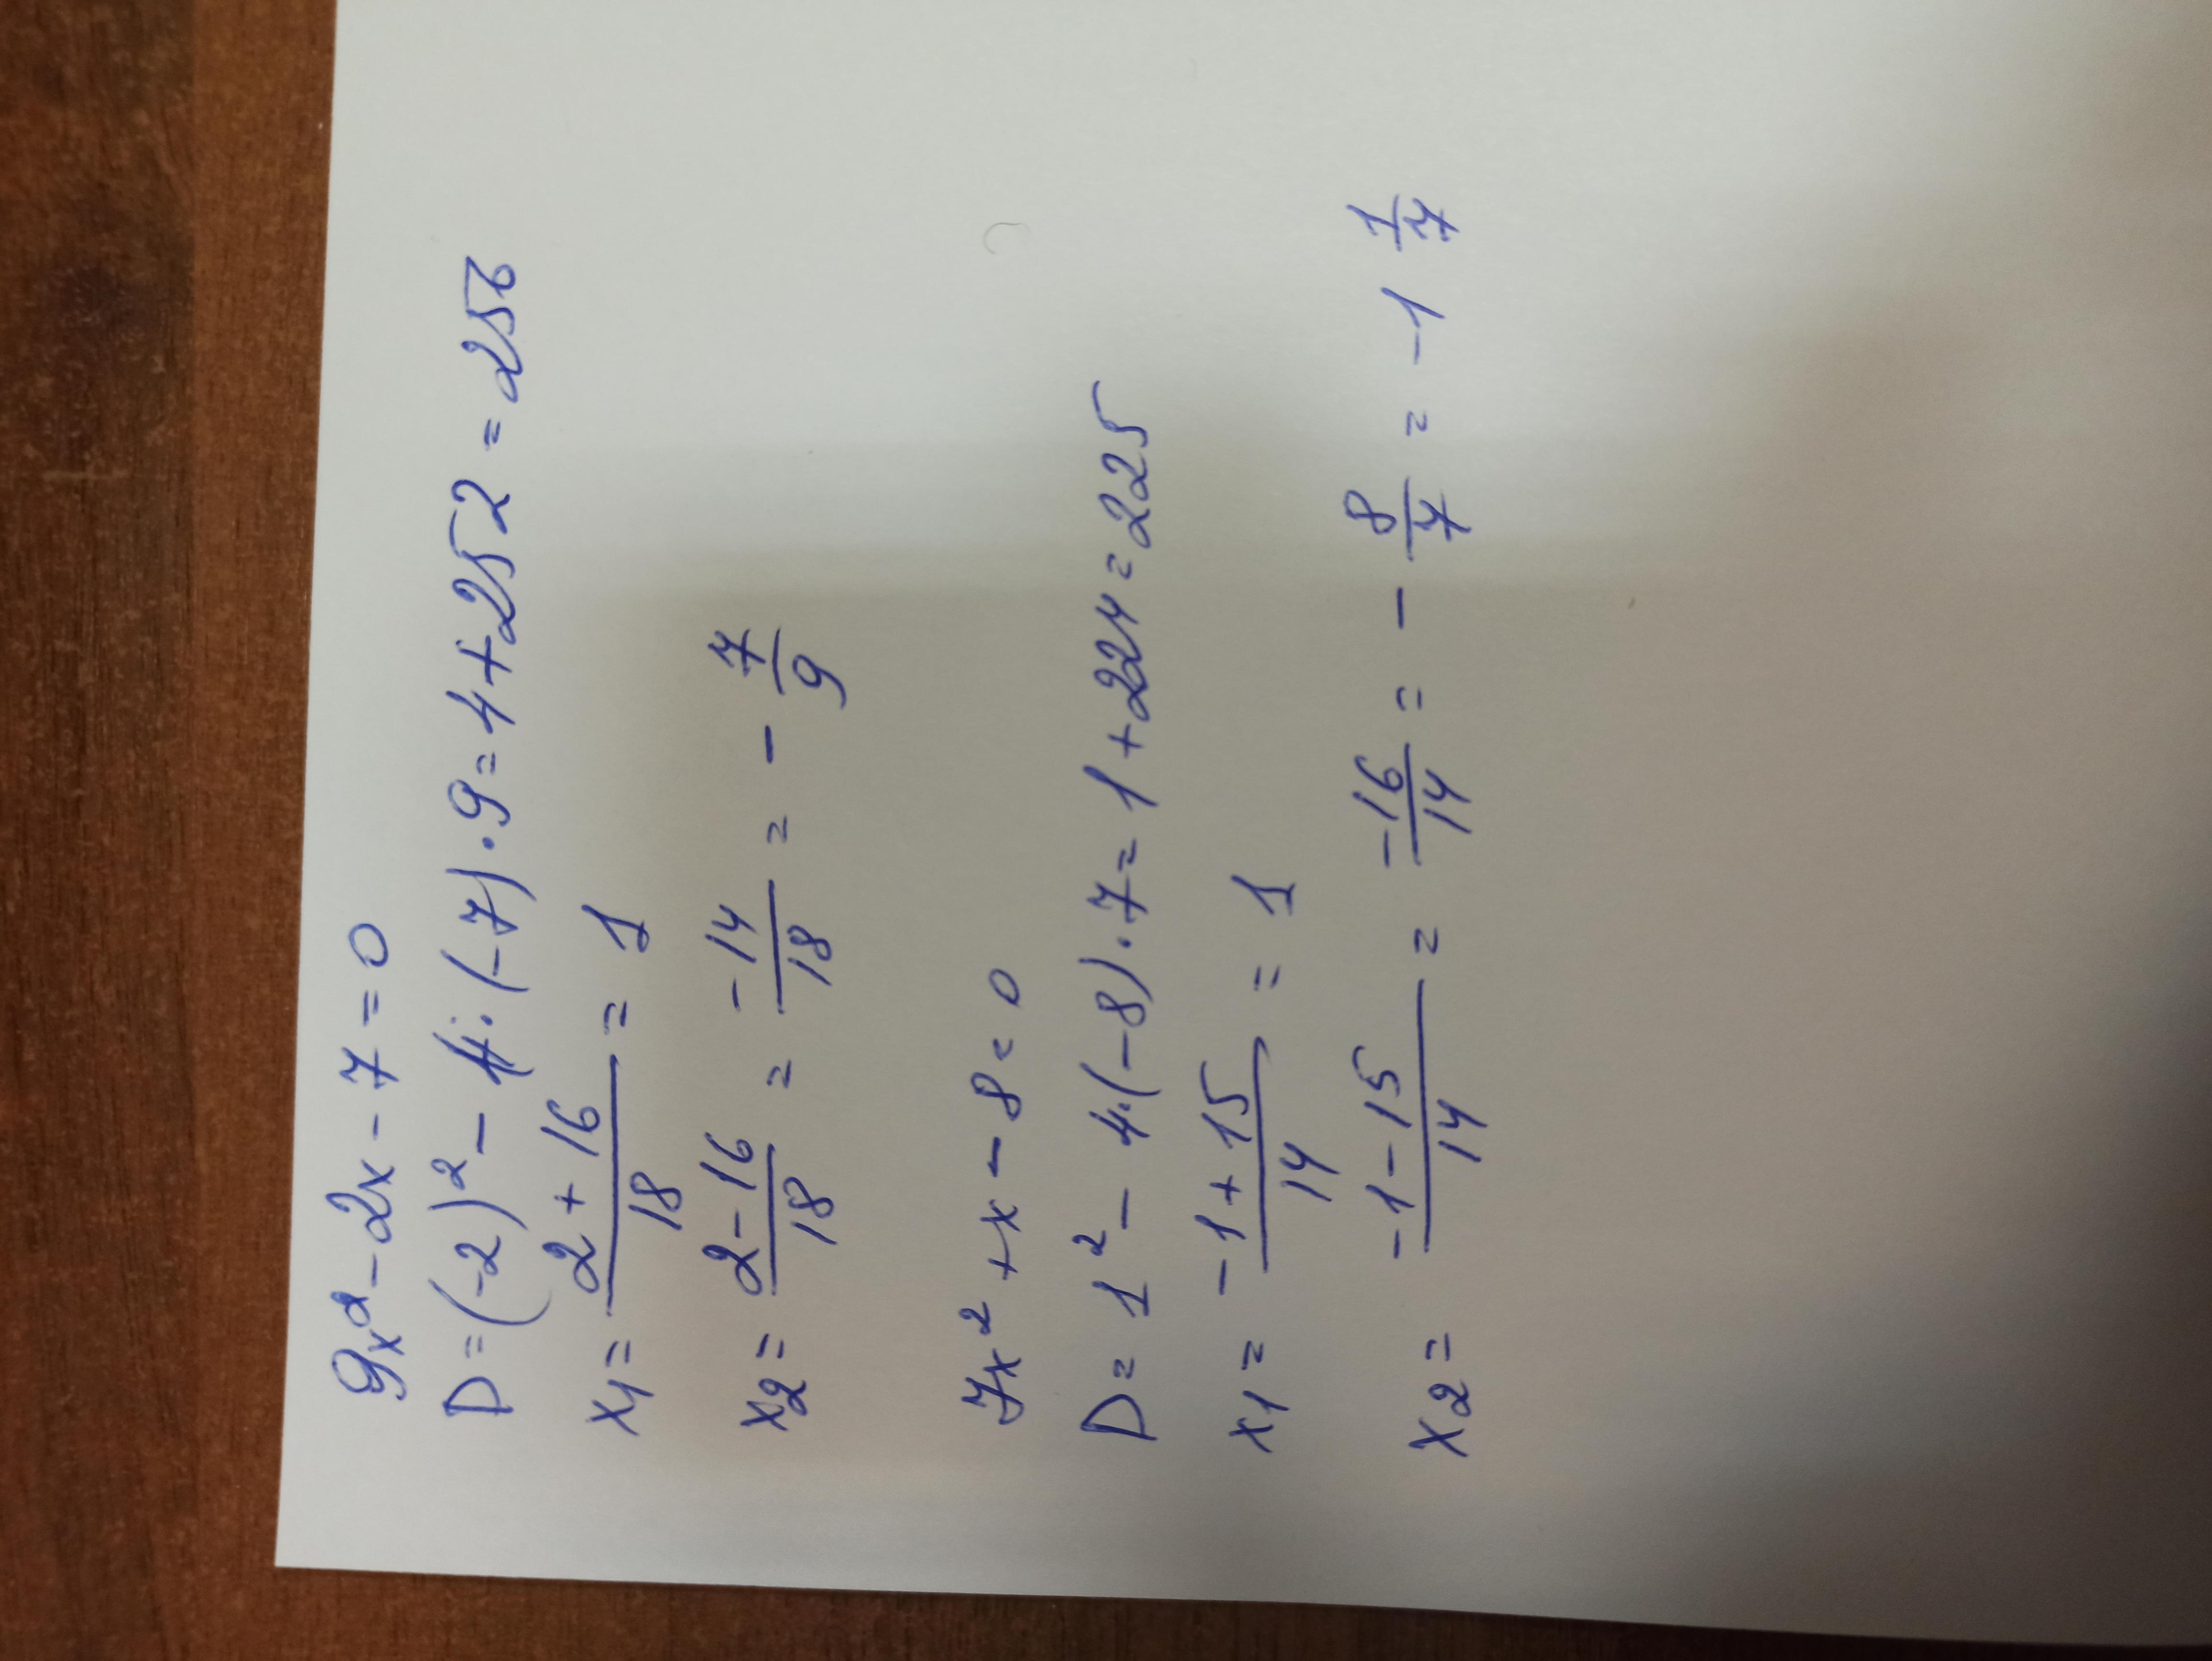 9x² - 2x - 7 = 0
D = (-2)² - 4·(-7)·9 = 4 + 252 = 256
x₁ = \frac{2+16}{18} = 1
x₂ = \frac{2-16}{18} = \frac{-14}{18} = -\frac{7}{9}
7x² + x - 8 = 0
D = 1² - 4·(-8)·7 = 1 + 224 = 225
x₁ = \frac{-1+15}{14} = 1
x₂ = \frac{-1-15}{14} = \frac{-16}{14} = -\frac{8}{7} = -1\frac{1}{7}